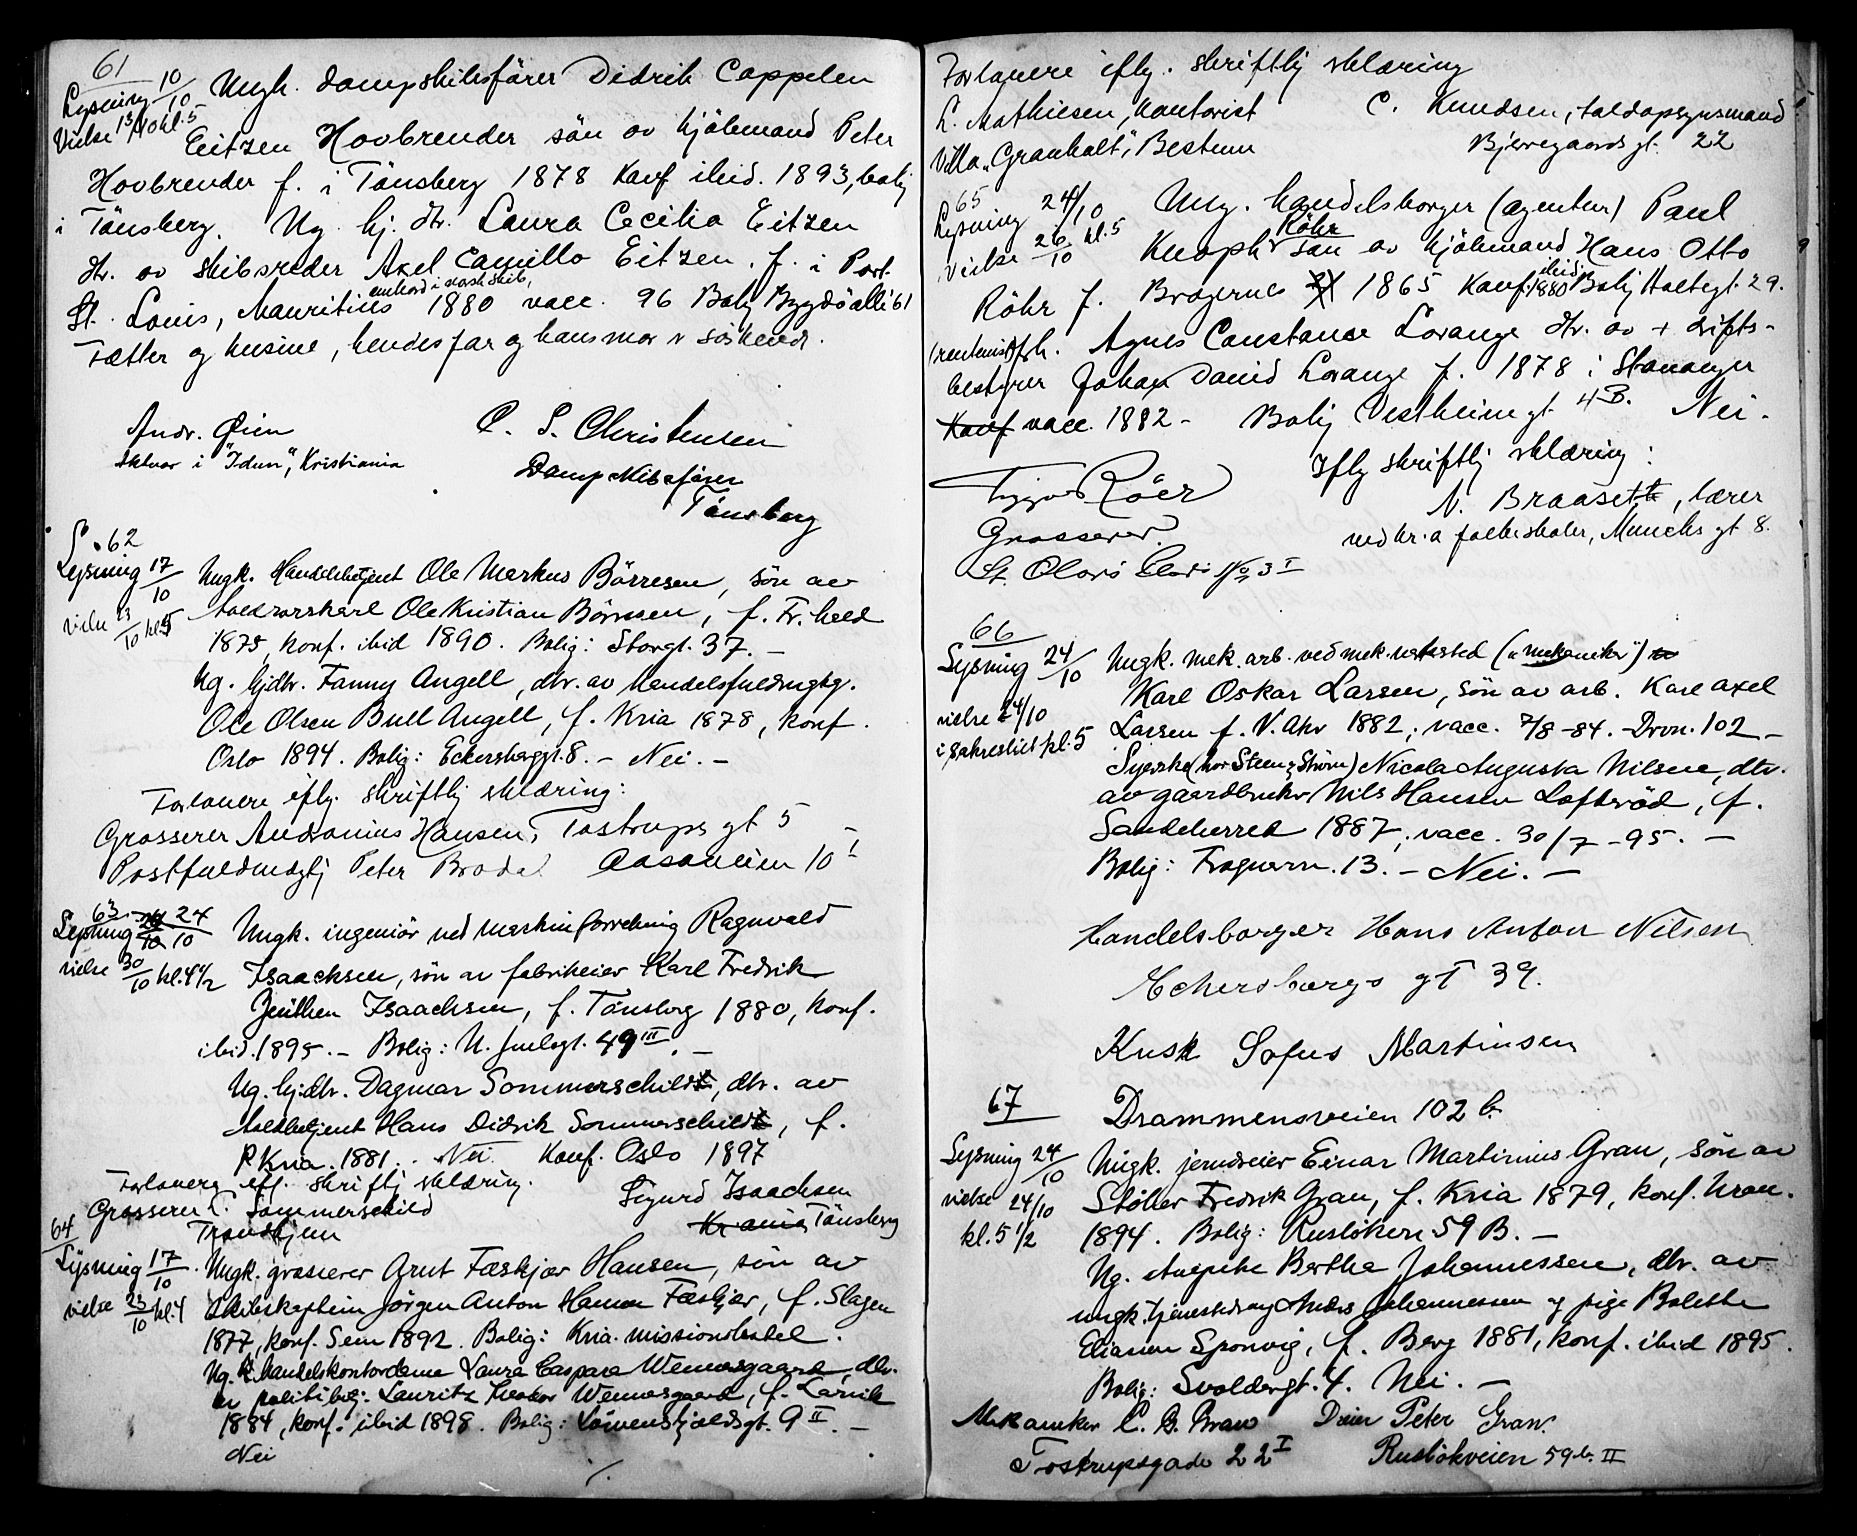 61
Lysning 10/10 Ungk. dampskibsfører Didrik Cappelen
Vielse 13/10 kl. 5
Eitzen Hovbrender søn av kjøbmand Peter
Hovbrender f. i Tønsberg 1878 Konf ibid. 1893, bolig
i Tønsberg. Ug. hj. dtr. Laura Cecilia Eitzen
dtr. av skibsreder Axel Camillo Eitzen. f. i Port-
ombord i norsk skib,
St. Louis, Mauritius 1880 vacc. 96 Bolig Bygdø allé 61
Fætter og kusine, hendes far og hans mor er søskende.
Andr. Øien
skluar i "Idun", Kristiania
C. S. Christensen
Dampskibsfører
Tønsberg
62
Lysning 17/10 Ungk. Handelsbetjent Ole Markus Børresen, søn av
vielse 23/10 kl. 5
Ole Kristian Børresen, f. Fr.hald
1875, konf. ibid 1890. Bolig: Storgt. 37. –
Ug. hj.dtr. Fanny Angell, dtr. av handelsfuldmægtig.
Ole Olsen Bull Angell, f. Kria 1878, konf.
Oslo 1894. Bolig: Eckersberggt. 8. – Nei. –
Forlovere iflg. skriftlig erklæring:
Grosserer Andronius Hansen, Tostrups gt 5
Postfuldmægtig Peter Brodal Aasaveien 10 I
63
Lysning 24/10 Ungk. ingeniør ved maskinforretning Ragnvald
vielse 30/10 kl. 4 1/2 Isaachsen, søn av fabrikeier Karl Fredrik
Zeuthen Isaachsen, f. Tønsberg 1880, konf.
ibid. 1895. – Bolig: U. 49 III. –
Ug. hj.dtr. Dagmar Sommerschild, dtr. av
toldbetjent Hans Didrik Sommerschild, f.
Kria. 1881. Nei. Konf. Oslo 1897
Forlovere efl. skriftlig erklæring.
Grosserer L. Sommerschild
Trondhjem
Sigurd Isaachsen
Kr ania Tønsberg
64
Lysning 17/10. Ungk. grosserer Arnt Fæskjær Hansen, søn av
vielse 23/10 kl. 4 skibskaptein Jørgen Anton Hansen Fæskjær, f. Slagen
1877, konf. Sem 1892. Bolig: Kria. missionshotel.
Ug. handelskontordame Laura Caspara Wennersgaard, dtr.
av politibtj: Lauritz Teodor Wennersgaard, f. Larvik
1884, konf. ibid 1898. Bolig: Løvenskjoldsgt. 9 II. –
Nei
Forlovere iflg. skriftlig erklæring
L. Mathiesen, kontorist
Villa "Granholt", Bestum
C. Knudsen, toldopsynsmand
Bjerregaards gt. 22
65
Lysning 24/10 Ung. handelsborger (agentur) Paul
Vielse 26/10 kl. 5
Röhr
Knoph søn av kjøbmand Hans Otto
ibid.
Röhr f. Bragernes 1865 Konf. 1880 Bolig Holtegt. 29.
frk. Agnes Constance Lorange dtr. av + drifts-
bestyrer Johan David Lorange f. 1878 i Stavanger
Konf vacc. 1882 – Bolig Vestheim gt. 4 B. Nei.
Iflg skriftlig erklæring:
Trygve Röer
Grosserer.
St. Olavs No 3 I
N. Braaset, lærer
ved kr.a folkeskoler, Munchs gt 8.
66
Lysning 24/10 Ungk. mek. arb. ved mek. verksted ("mekaniker")
vielse 24/10
i sakrestiet kl. 5
Karl Oskar Larsen, søn av arb. Karl Axel
Larsen f. V. Aker 1882; vacc. 7/8-84. Drvn. 102 –
Syerske (hos Steen & Strøm) Nicola Augusta Nilsen, dtr.
av gaardbruker Nils Hansen Loftsrød, f.
Sandeherred 1887; vacc. 30/7-95. –
Bolig: Frognerv. 13. – Nei. –
Handelsborger Hans Anton Nilsen
Eckersbergs gt 39.
Kusk Sofus Martinsen
Drammensveien 102 b.
67
Lysning 24/10 Ungk. jerndreier Einar Martinius Gran, søn av
vielse 24/10
kl. 5 1/2
Støber Fredrik Gran, f. Kria 1879, konf. Uran.
1894. Bolig: Rusløkven 59 B. –
Ug. Bertha Johannessen, dtr. av
ungk. tjenestedreng Anders Johannessen og pige Bolette
Eliasen Sponvig, f. Berg 1881, konf. ibid 1895.
Bolig: Svoldergt. 4. Nei. –
Mekaniker C. B. Gran
Tostrupsgade 22 I
Dreier Peter Gran.
Rusløkveien 59 b. II